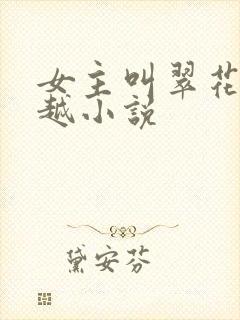 女主叫翠花
越小说
黛安芬